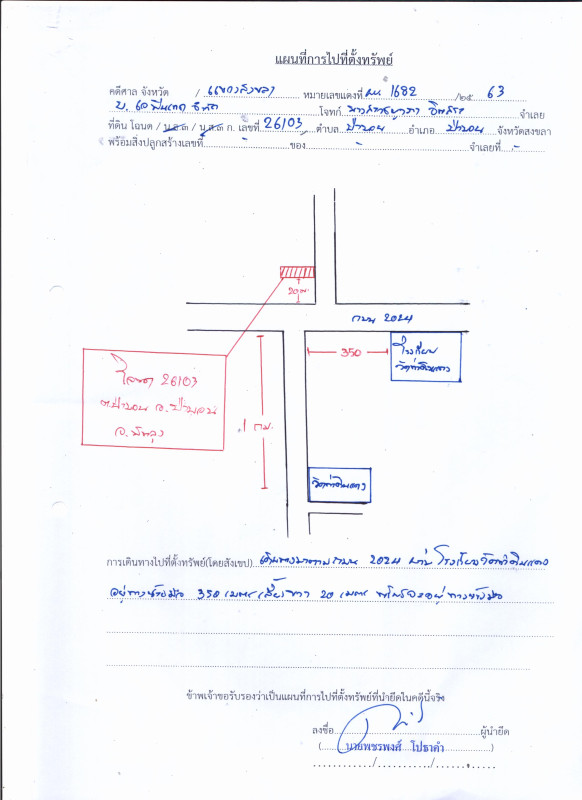 แผนที่การไปที่ตั้งทรัพย์
คดีศาล จังหวัด / แขวงสงขลา หมายเลขแดงที่ ผบ 1682 /๒๕ 63
บ. เอ จำกัด โจทก์ จำเลย
ที่ดิน โฉนด / น.ส.๓ / น.ส.๓ ก. เลขที่ 26103 ตำบล ป่าบอน อำเภอ ป่าบอน จังหวัดสงขลา
พร้อมสิ่งปลูกสร้างเลขที่ - ของ - จำเลยที่ -
20 ม.
ถนน 2024
350
โรงเรียน
วัดท่าดินแดง
โฉนด 26103
ต.ป่าบอน อ.ป่าบอน
จ.พัทลุง
1 กม.
วัดท่าดินแดง
การเดินทางไปที่ตั้งทรัพย์(โดยสังเขป) เดินทางมาตามถนน 2024 ผ่านโรงเรียนวัดท่าดินแดง
อยู่ทางซ้ายมือ 350 เมตร เลี้ยวขวา 20 เมตร ทรัพย์จะอยู่ทางซ้ายมือ
ข้าพเจ้าขอรับรองว่าเป็นแผนที่การไปที่ตั้งทรัพย์ที่นำยึดในคดีนี้จริง
ลงชื่อ ผู้นำยึด
(นายพชรพงศ์ โปธาคำ)